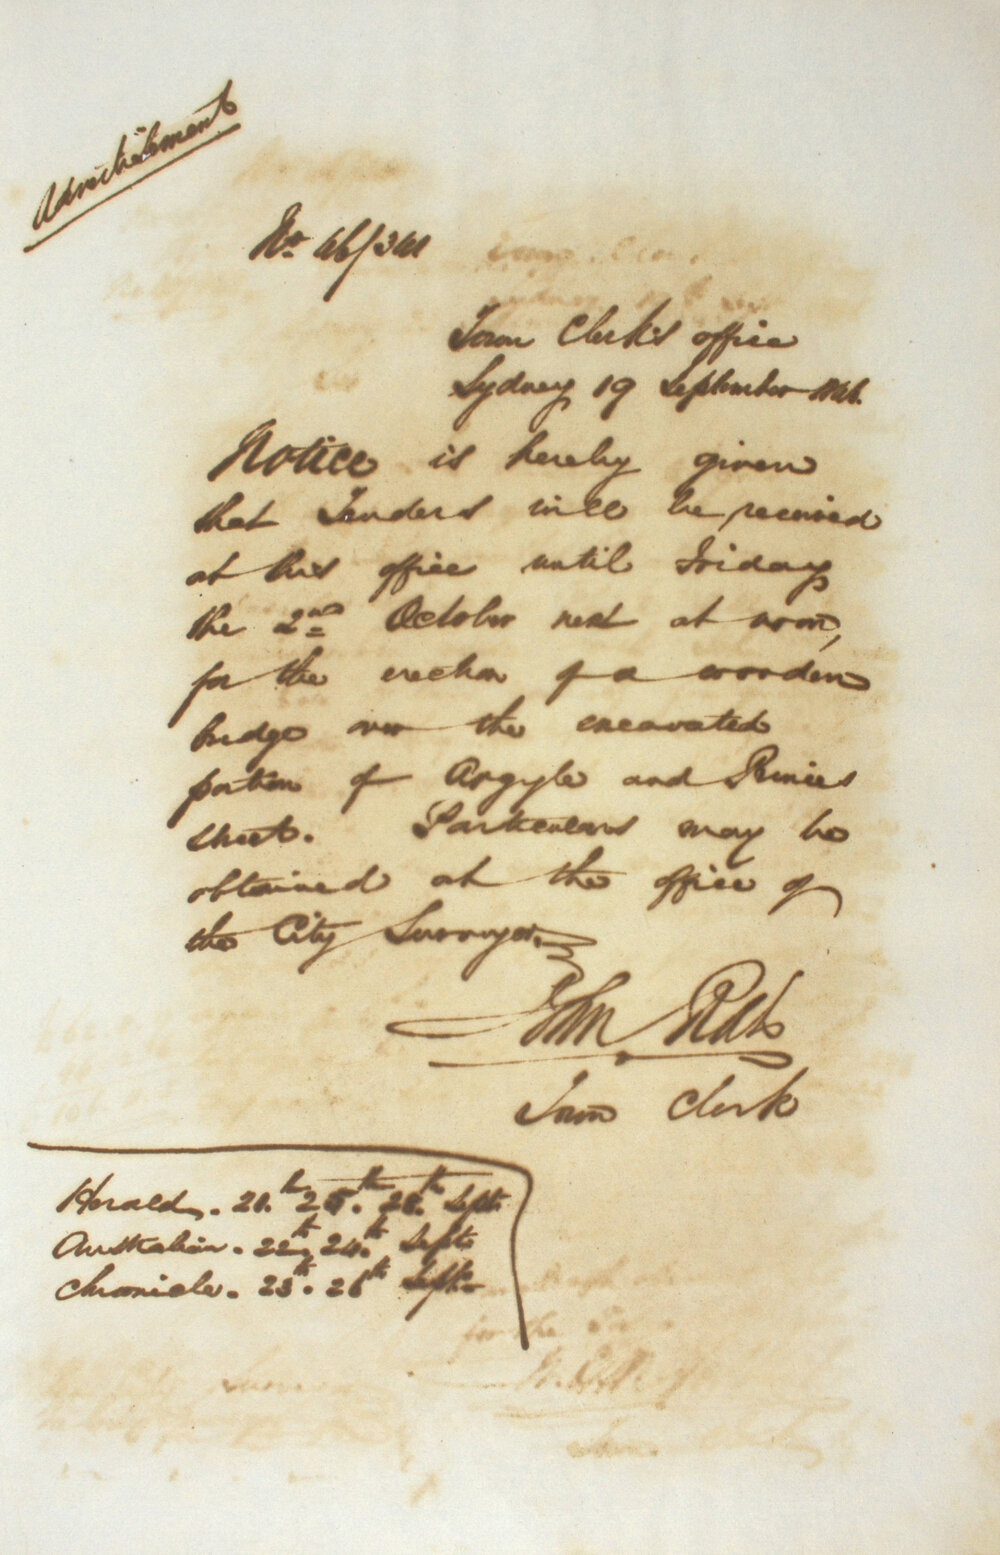 Advertisement
No. 46/341
Town Clerk's office
Sydney 19 September 1846.
Notice is hereby given
that Tenders will be received
at this office until Friday
the 2nd October next at noon,
for the erection of a wooden
bridge over the excavated
portion of Argyle and Princes
Street. Particulars may be
obtained at the office of
the City Surveyor.
John Rae
Town Clerk
Herald. 21. 25th. 28th Sept.
Australian. 22nd 24th Sept.
Chronicle. 23. 26th Sept.
for the